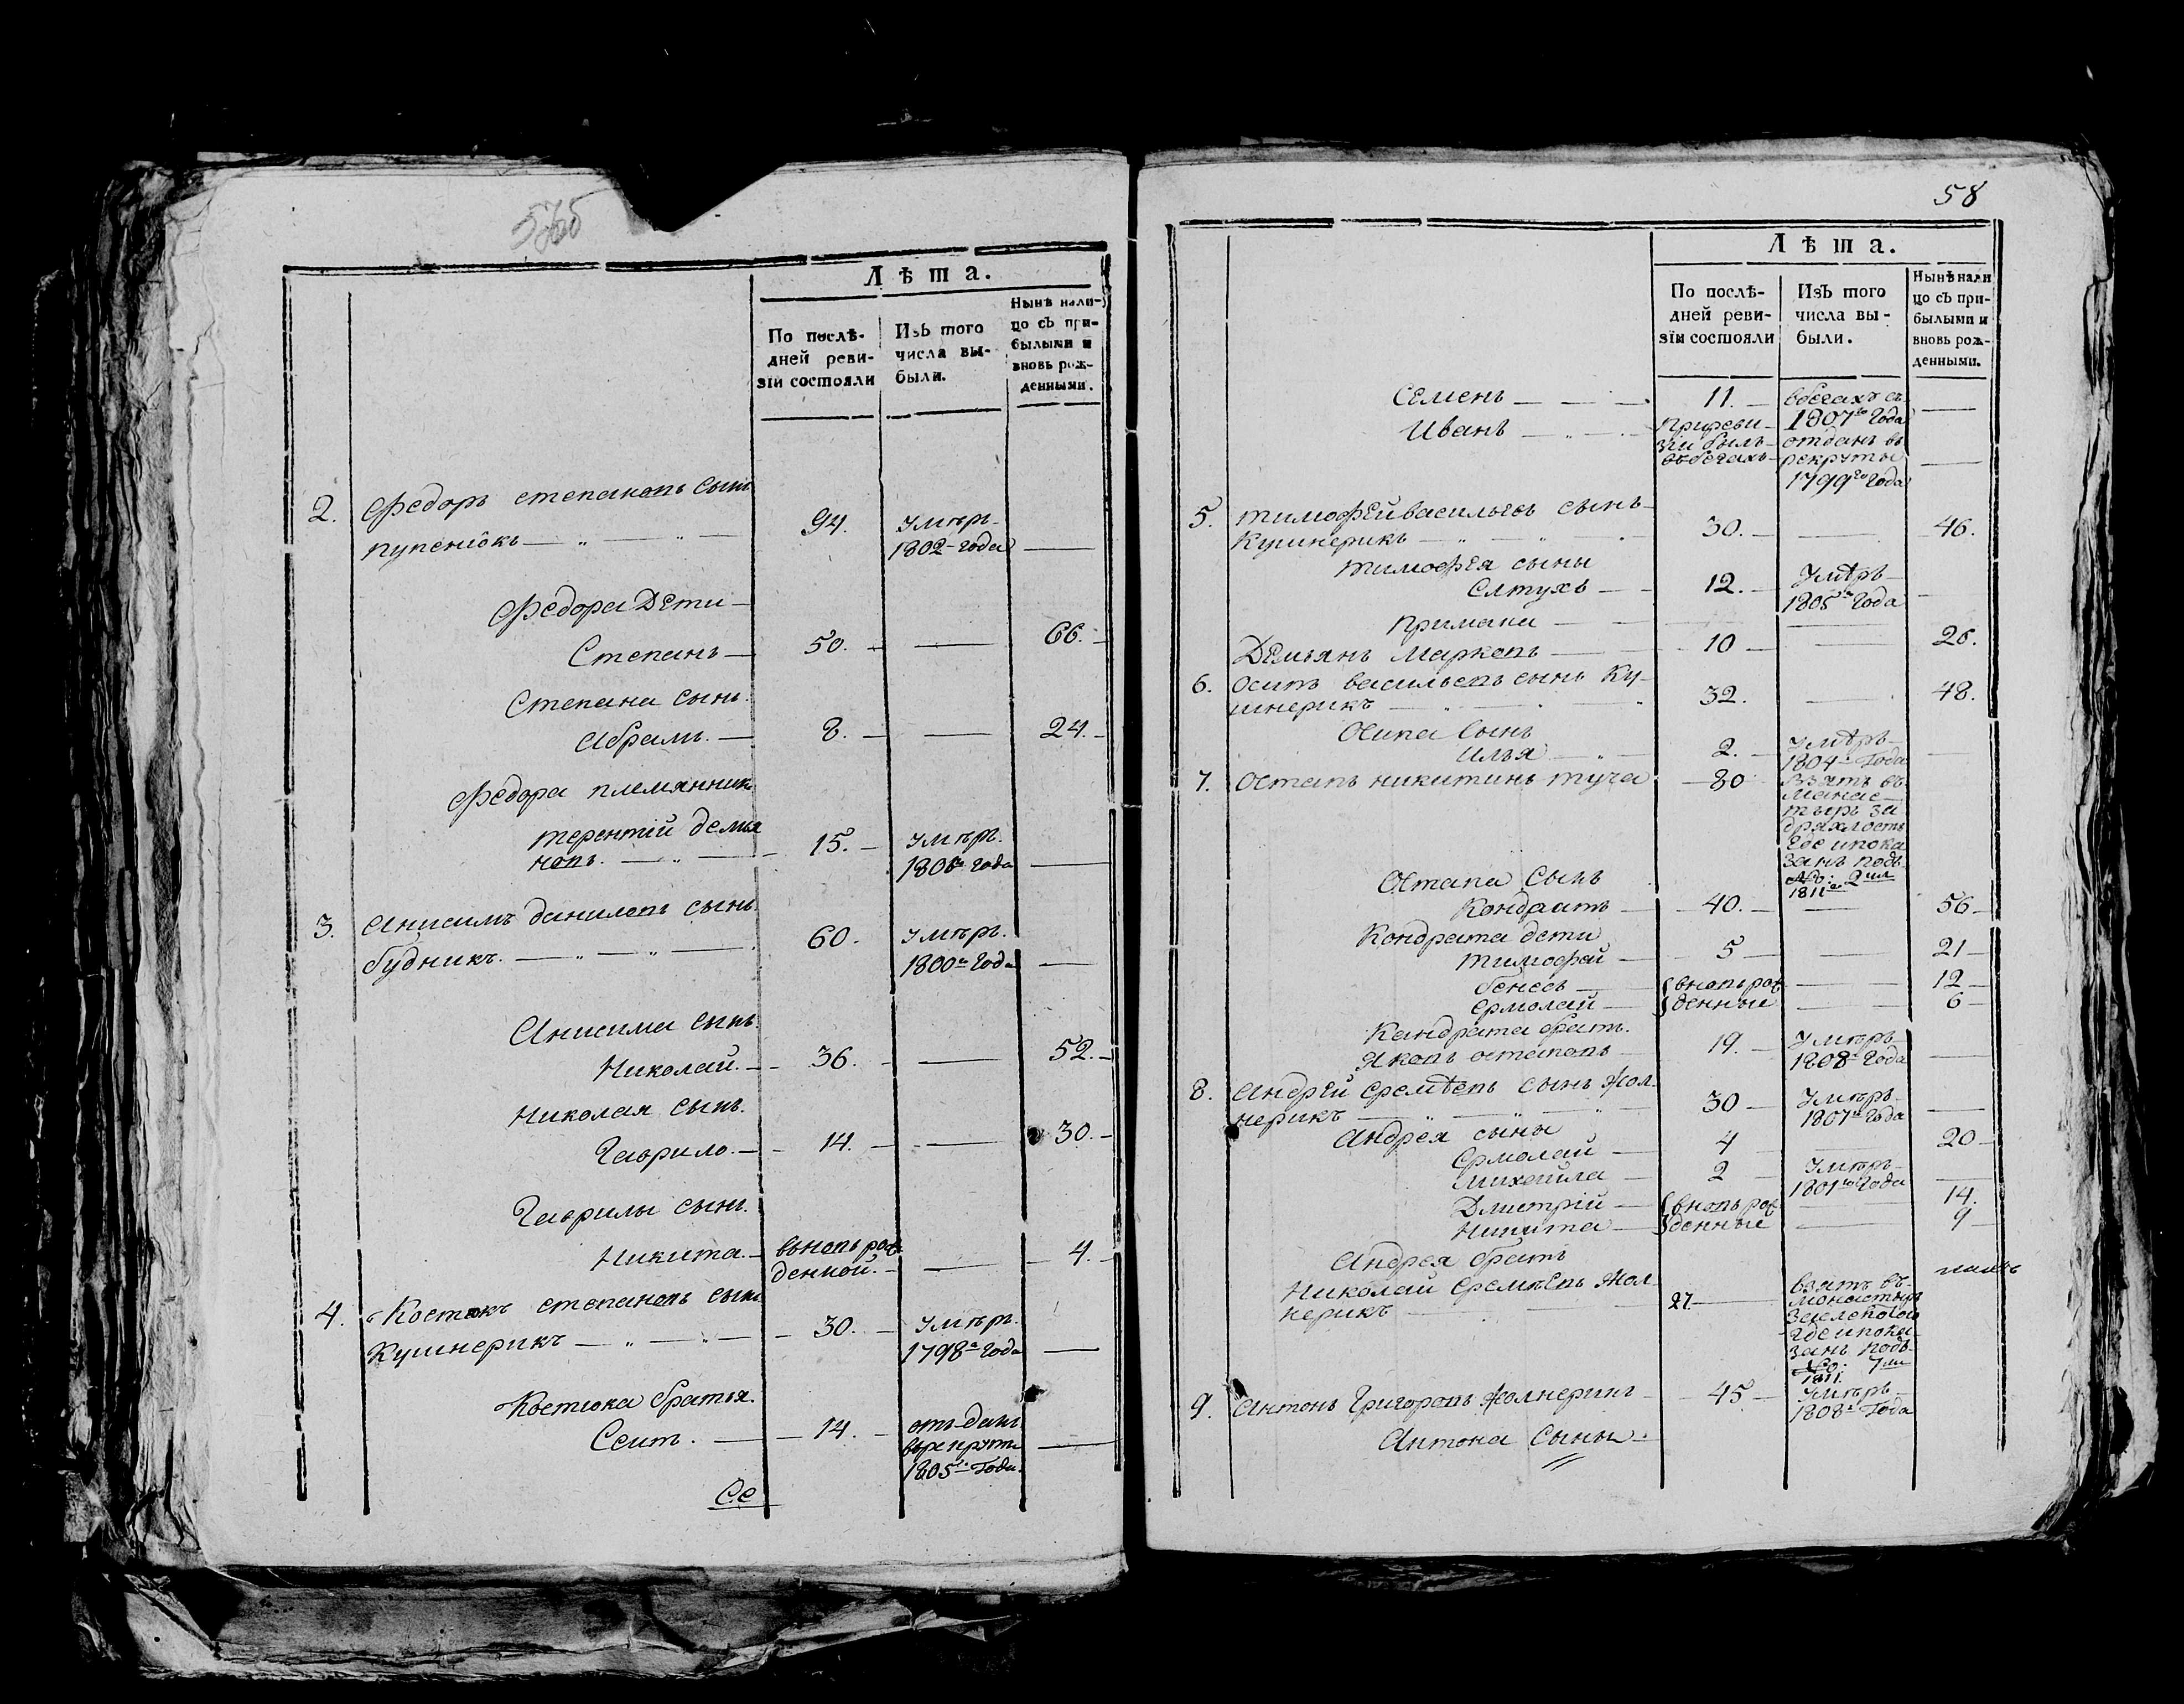 Лѣта.
По послѣ-
дней реви-
зіи состояли
Изъ того
числа вы-
были.
Нынѣ нали-
цо съ при-
былыми и
вновь рож-
денными.
2. Федоръ степановъ сынъ
пупенюкъ — 94. умѣръ
1802 года —
Федора Дети
Степанъ — 50. — 66.
Степана сынъ
Абрамъ. — 8. — 24.
Федора племянникъ
терентій демья
новъ. — 15. — умѣръ
1806 года —
3. Анисимъ даниловъ сынъ
будникъ. — 60. умѣръ
1800го Года —
Анисима сынъ
Николай. — 36. — 52.
Николая сынъ.
Гаврило. — 14. — 30.
Гаврилы сынъ.
Никита. — вновь рож
денной. — 4.
4. Костюкъ степановъ сынъ
Кушнерикъ — 30. — умѣръ
1798го Года —
Костюка братья.
Есипъ. — 14. — отъданъ
врекруты
1805го Года. —
Се
58
Лѣта.
По послѣ-
дней реви-
зіи состояли
Изъ того
числа вы-
были.
Нынѣ нали
цо съ при-
былыми и
вновь рож-
денными.
Семенъ — 11. — вбегахъ съ
1807го Года —
Иванъ — приреви-
зіи былъ
вбегахъ отданъ въ
рекруты
1799го Года —
5. тимофей васильевъ сынъ
Кушнерикъ — 30. — 46.
тимофея сыны
Елтухъ — 12. — Умѣръ
1805го Года —
примаки
Демьянъ Марковъ — 10 — 26.
6. Осипъ васильевъ сынъ Ку-
шнерикъ — 32. — 48.
Осипа Сынъ
Илья — 2. — умѣръ
1804го Года —
7. Остапъ никитинъ туча — 80 взятъ въ
Манас-
тырь за
дряхлость
Где ипока
занъ подъ
№: 2мъ
1811го
Остапа Сынъ
Кондратъ — 40. — 56
Кондрата дети
Тимофей — 5 — 21
бенесь — вновь рож — 12
ермолай — денные — 6
Кандрата братъ.
Яковъ остаповъ — 19. — Умѣръ
1808го Года —
8. Андрей Еремѣевъ сынъ Жол-
нерикъ — 30 — Умѣръ
1807го Года —
Андрея сыны
Ермолай — 4 — 20
Михайла — 2 — Умѣръ
1801го Года —
Дмитрій — вновь рож — 14.
Никита — денные — 9
Андрея братъ
Николай Еремѣевъ Жол-
нерикъ — 27. — взятъ въ
монастырь
Где ипока-
занъ подъ
№: 7мъ
1811.
9. Антонъ Григоровъ Жолнерикъ — 45 — Умѣръ
1808го Года
Антона Сыны